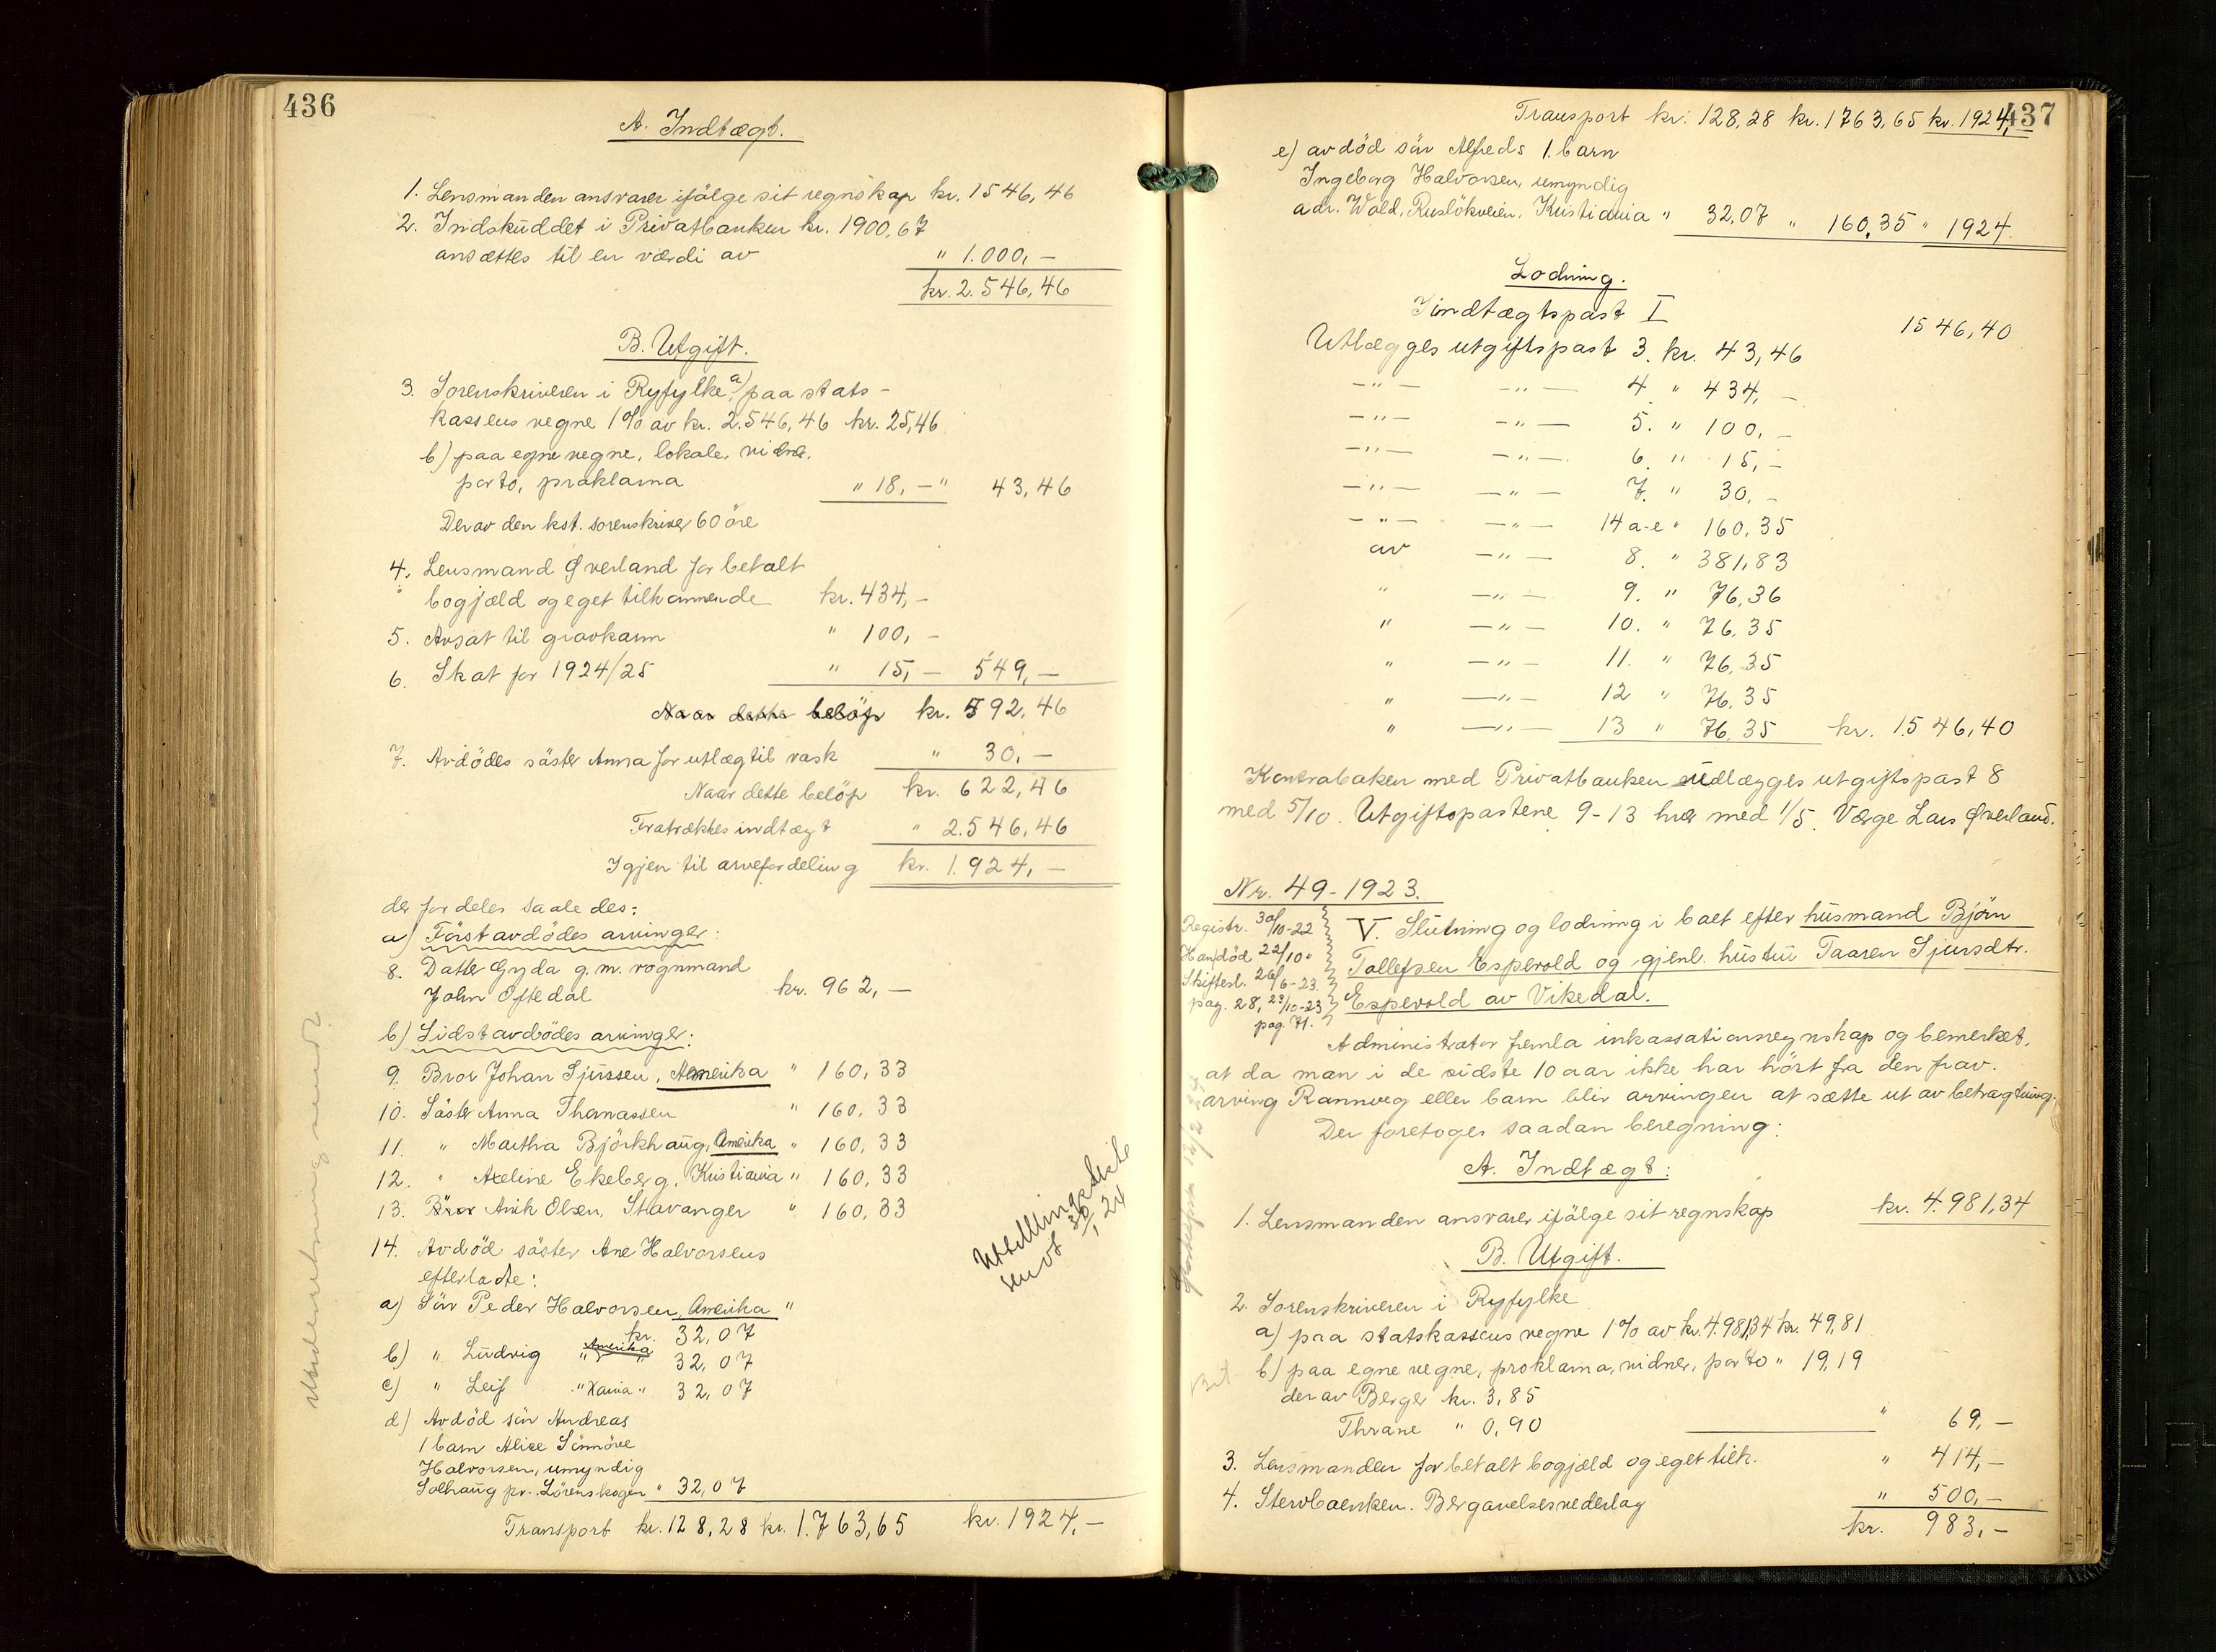 436
A. Indtægt.
1. Lensmanden ansvarer ifölge sit regnskap kr. 1546,46
2. Indskuddet i Privatbanken kr. 1900,67
ansættes til en værdi av " 1.000,-
kr. 2.546,46
B. Utgift.
3. Sorenskriveren i Ryfylke a) paa stats-
kassens vegne 1% av kr. 2.546,46 kr. 25,46
b) paa egne vegne, lokale, vidne,
porto, proklama " 18,- " 43,46
Derav den kst. sorenskriver 60 öre
4. Lensmand Øverland for betalt
bogjæld og eget tilkommende kr. 434,-
5. Avsat til gravkarm " 100,-
6. Skat for 1924/25 " 15,- 549,-
Naar dette beløp kr. 592,46
7. Avdödes söster Anna for utlæg til vask " 30,-
Naar dette belöp kr. 622,46
Fratrækkes indtægt " 2.546,46
Igjen til arvefordeling kr. 1.924,-
der fordeles saaledes:
a) Först avdödes arvinger:
8. Datter Gyda g. m. vognmand
John Oftedal kr. 962,-
b) Sidst avdödes arvinger:
9. Bror Johan Sjursen, Amerika " 160,33
10. Söster Anna Thomassen " 160,33
11. " Martha Björkhaug, Amerika " 160,33
12. " Axeline Ekeberg, Kristiania " 160,33
13. Bror Anik Olsen, Stavanger " 160,33
14. Avdöd söster Ane Halvorsens
efterladte:
a) Sön Peder Halvorsen, Amerika "
kr. 32,07
b) " Ludvig " Amerika " 32,07
c) " Leif " Xania " 32,07
d) Avdöd sön Andreas
1 barn Alice Sönnöve
Halvorsen, umyndig
Solhaug pr. Lörenskogen " 32,07
Transport kr. 128,28 kr. 1.763,65 kr. 1924,-
Utdelling
sendt 30/ 24
437
Transport kr. 128,28 kr. 1763,65 kr. 1924,
e) avdöd sön Alfreds 1. barn
Ingeborg Halvorsen, umyndig
adr. Wold, Ruslökveien, Kristiania " 32,07 " 160,35 " 1924.
Lodning.
I indtægtspost I 1546,40
Utlægges utgiftspost 3. kr. 43,46
-"- -"- 4 " 434,-
-"- -"- 5. " 100,-
-"- -"- 6. " 15,-
-"- -"- 7. " 30,-
-"- -"- 14 a-e " 160,35
av -"- 8. " 381,83
" -"- 9. " 76,36
" -"- 10. " 76,35
" -"- 11. " 76,35
" -"- 12 " 76,35
" -"- 13 " 76,35 kr. 1546,40
Kontraboken med Privatbanken udlægges utgiftspost 8
med 5/10. Utgiftspostene 9-13 hver med 1/5. Værge Lars Øverland.
Nr. 49-1923.
Registr. 30/10-22
Han död 22/10"
Skiftesl. 26/6-23.
pag. 28, 23/10-23
pag. 71.
V. Slutning og lodning i boet efter husmand Björn
Tollefsen Espevold og gjenl. hustru Taaren Sjursdtr.
Espevold av Vikedal.
Administrator fremla inkassationsregnskap og bemerket,
at da man i de sidste 10 aar ikke har hört fra den frav.
arving Rannveg eller barn blir arvingen at sætte ut av betragtning.
Der foretoges saadan beregning:
A. Indtægt:
1. Lensmanden ansvarer ifölge sit regnskap kr. 4.981,34
B. Utgift.
2. Sorenskriveren i Ryfylke
a) paa statskassens vegne 1% av kr. 4.981,34 kr. 49,81
b) paa egne vegne, proklama, vidner, porto " 19,19
derav Berger kr. 3,85
Thrane " 0,90 " 69,-
3. Lensmanden for betalt bogjæld og eget tilk. " 414,-
4. Stervboenken. Begravelsesvederlag " 500,-
kr. 983,-